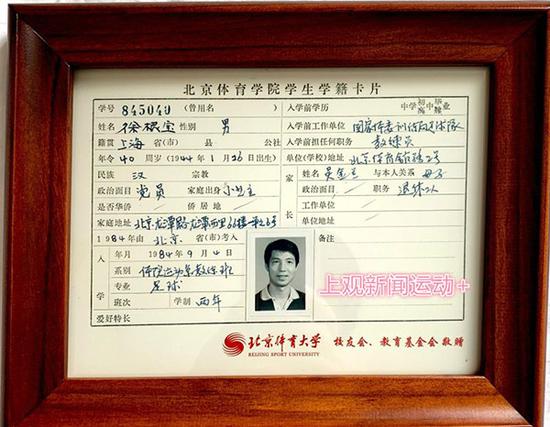 北京体育学院学生学籍卡片
学号 845049 (曾用名) 入学前学历 中学初中毕业 高中肄业
姓名 徐根宝 性别 男 入学前工作单位 国家体委训练局足球队
籍贯 上海 省(市) 县 公社 入学前担任何职务 教练员
年令 40 周岁 (1944年1月26日出生) 单位(学校)地址 北京体育馆路2号
民族 汉 宗教 家长 姓名 与本人关系 母子
政治面目 党员 家庭出身 小业主 政治面目 职务 退休工人
是否华侨 侨居地 工作单位
家庭地址 北京 单位地址
1984年由 北京 省(市)考入 备注
入学 年月 1984年9月4日
系别
专业 足球
班次 学制 两年
爱好特长
上观新闻运动+
北京体育大学 校友会、教育基金会敬赠
BEIJING SPORT UNIVERSITY